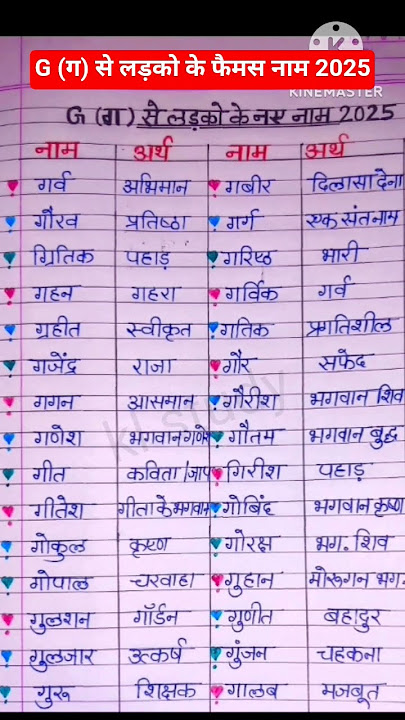 G (ग) से लड़को के फैमस नाम 2025
KINEMASTER
G (ग) से लड़को के नए नाम 2025
नाम अर्थ नाम अर्थ
गर्व अभिमान गबीर दिलासा देना
गौरव प्रतिष्ठा गर्ग एक संत नाम
ग्रितिक पहाड़ गरिष्ठ भारी
गहन गहरा गर्विक गर्व
ग्रहीत स्वीकृत गतिक प्रगतिशील
गजेंद्र राजा गौर सफेद
गगन आसमान गौरीश भगवान शिव
गणेश भगवान गणे गौतम भगवान बुद्ध
गीत कविता/जाप गिरीश पहाड़
गीतेश गीता के भगवान गोबिंद भगवान कृष्ण
गोकुल कृष्ण गोरक्ष भग. शिव
गोपाल चरवाहा गुहान मोरूगन भग.
गुलशन गॉर्डन गुणीत बहादुर
गुलजार उत्कर्ष गुंजन चहकना
गुरू शिक्षक गालब मजबूत
kl study